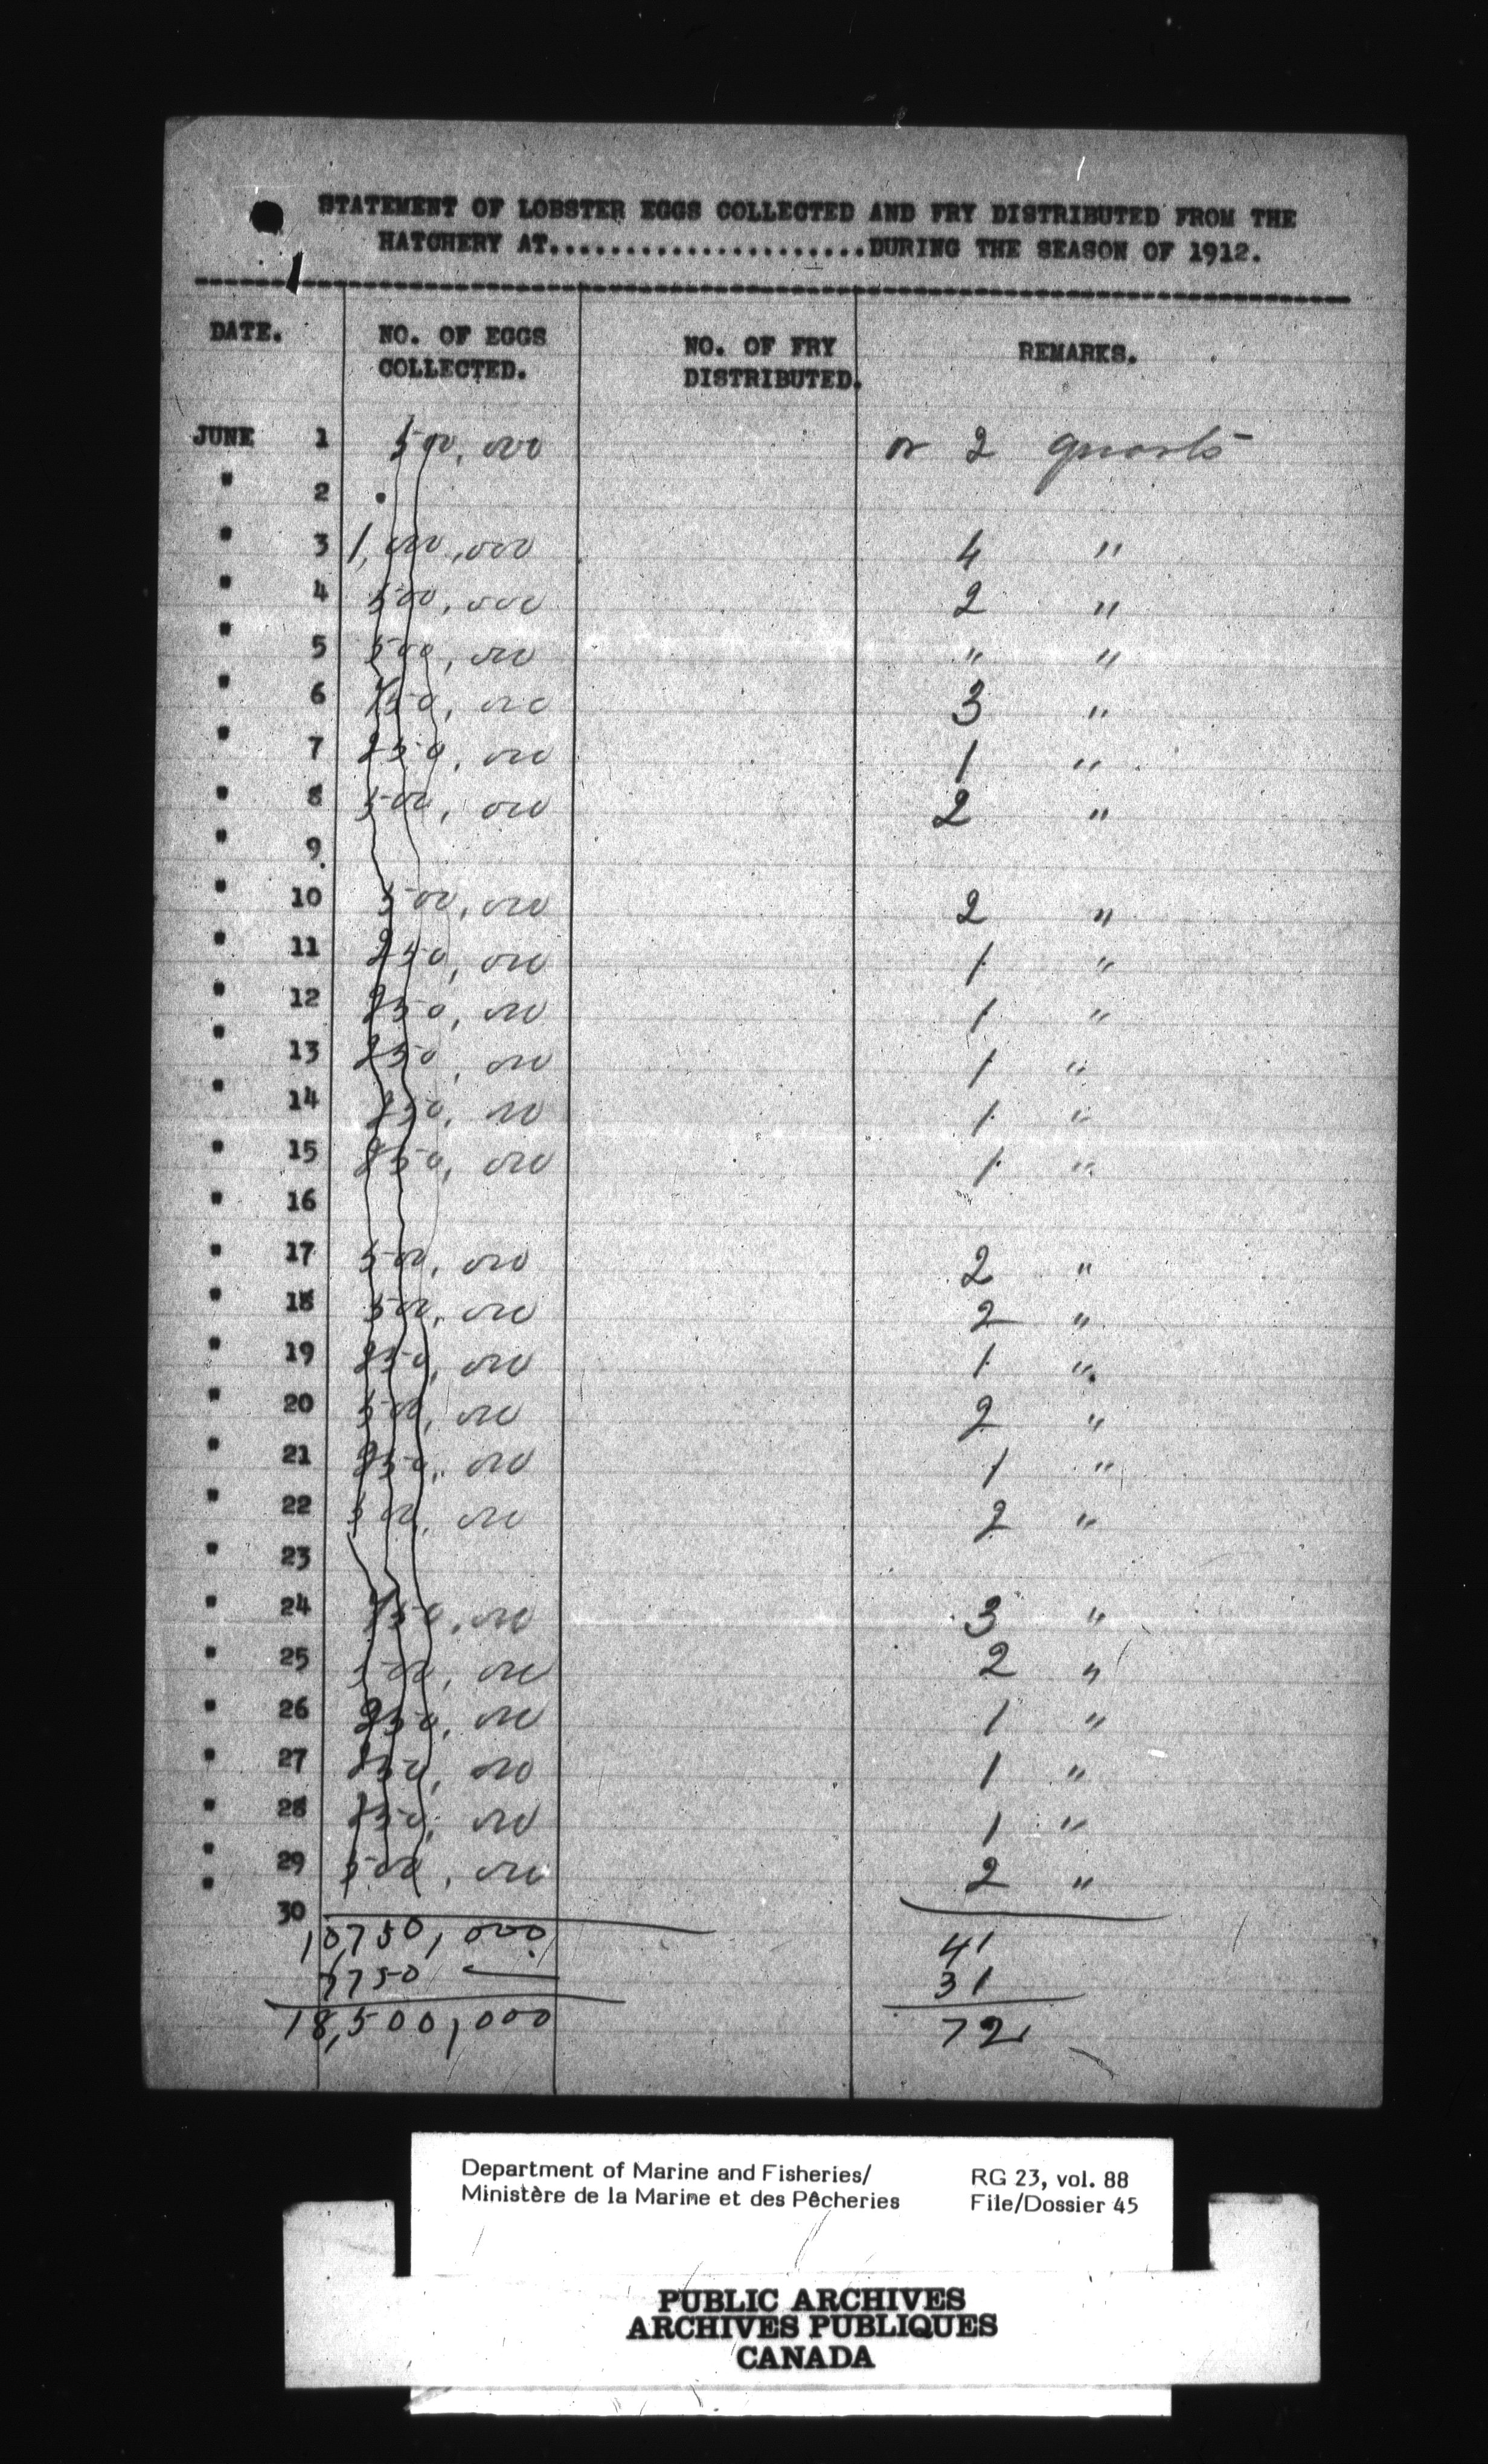 STATEMENT OF LOBSTER EGGS COLLECTED AND FRY DISTRIBUTED FROM THE
HATCHERY AT.....................DURING THE SEASON OF 1912.
DATE. NO. OF EGGS COLLECTED. NO. OF FRY DISTRIBUTED. REMARKS.
JUNE 1 500,000 or 2 quarts
" 2
" 3 1,000,000 4 "
" 4 500,000 2 "
" 5 500,000 " "
" 6 750,000 3 "
" 7 250,000 1 "
" 8 500,000 2 "
" 9
" 10 500,000 2 "
" 11 250,000 1 "
" 12 250,000 1 "
" 13 250,000 1 "
" 14 250,000 1 "
" 15 250,000 1 "
" 16
" 17 500,000 2 "
" 18 500,000 2 "
" 19 250,000 1 "
" 20 500,000 2 "
" 21 250,000 1 "
" 22 500,000 2 "
" 23
" 24 750,000 3 "
" 25 500,000 2 "
" 26 250,000 1 "
" 27 250,000 1 "
" 28 250,000 1 "
" 29 500,000 2 "
" 30
10,750,000 41
7750 — 31
18,500,000 72
Department of Marine and Fisheries/
Ministère de la Marine et des Pêcheries
RG 23, vol. 88
File/Dossier 45
PUBLIC ARCHIVES
ARCHIVES PUBLIQUES
CANADA